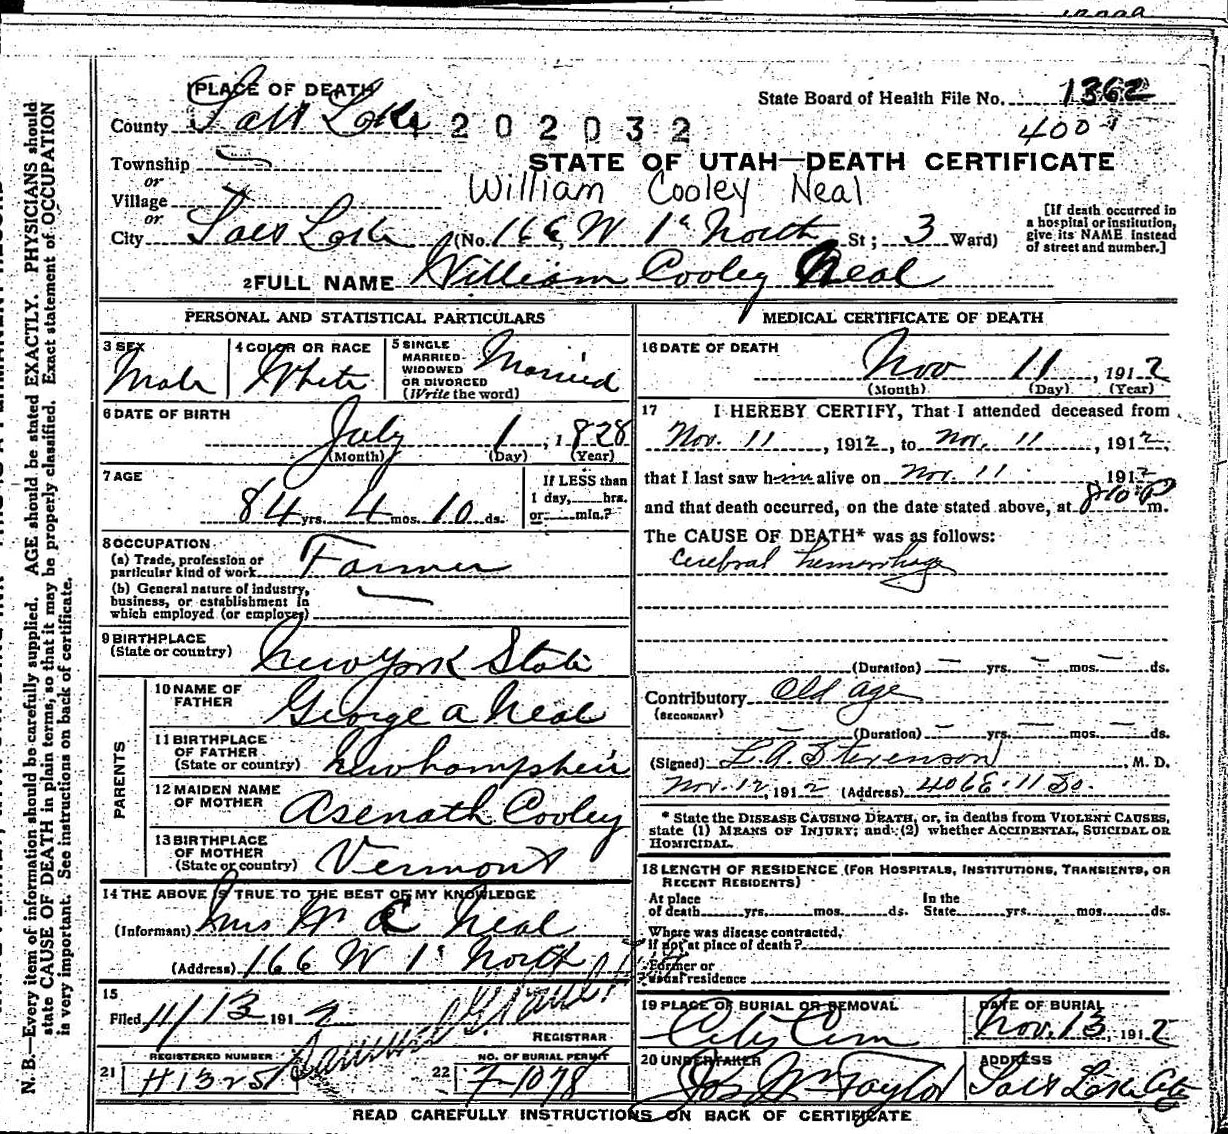 N. B.—Every item of information should be carefully supplied. AGE should be stated EXACTLY. PHYSICIANS should
state CAUSE OF DEATH in plain terms, so that it may be properly classified. Exact statement of OCCUPATION
is very important. See instructions on back of certificate.
PLACE OF DEATH
State Board of Health File No. 1362
County Salt Lake 202032
400
Township
STATE OF UTAH—DEATH CERTIFICATE
or
Village
William Cooley Neal
or
City Salt Lake (No. 166 W 1st North St; 3 Ward)
[If death occurred in
a hospital or institution,
give its NAME instead
of street and number.]
2 FULL NAME William Cooley Neal
PERSONAL AND STATISTICAL PARTICULARS
3 SEX Male
4 COLOR OR RACE White
5 SINGLE
MARRIED
WIDOWED
OR DIVORCED
(Write the word)
Married
6 DATE OF BIRTH
July 1, 1828
(Month) (Day) (Year)
7 AGE
84 yrs. 4 mos. 10 ds.
If LESS than
1 day, hrs.
or min.?
8 OCCUPATION
(a) Trade, profession or
particular kind of work Farmer
(b) General nature of industry,
business, or establishment in
which employed (or employer)
9 BIRTHPLACE
(State or country) New York State
PARENTS
10 NAME OF
FATHER George A Neal
11 BIRTHPLACE
OF FATHER
(State or country) Newhampsheir
12 MAIDEN NAME
OF MOTHER Asenath Cooley
13 BIRTHPLACE
OF MOTHER
(State or country) Vermont
14 THE ABOVE IS TRUE TO THE BEST OF MY KNOWLEDGE
(Informant) Mrs W C Neal
(Address) 166 W 1st North
15
Filed 11/13 1912
REGISTRAR
REGISTERED NUMBER
21
NO. OF BURIAL PERMIT
22 F-1078
MEDICAL CERTIFICATE OF DEATH
16 DATE OF DEATH
Nov 11, 1912
(Month) (Day) (Year)
17 I HEREBY CERTIFY, That I attended deceased from
Nov. 11, 1912, to Nov. 11, 1912,
that I last saw him alive on Nov. 11 1912
and that death occurred, on the date stated above, at 8 10 P m.
The CAUSE OF DEATH* was as follows:
Cerebral hemorrhage
(Duration) — yrs. — mos. — ds.
Contributory Old age
(SECONDARY)
(Duration) — yrs. — mos. — ds.
(Signed) L. A. Stevenson, M. D.
Nov. 12, 1912 (Address) 406 E. 11 So.
* State the DISEASE CAUSING DEATH, or, in deaths from VIOLENT CAUSES,
state (1) MEANS OF INJURY; and (2) whether ACCIDENTAL, SUICIDAL OR
HOMICIDAL.
18 LENGTH OF RESIDENCE (FOR HOSPITALS, INSTITUTIONS, TRANSIENTS, OR
RECENT RESIDENTS)
At place
of death yrs. mos. ds.
In the
State yrs. mos. ds.
Where was disease contracted,
if not at place of death?
Former or
usual residence
19 PLACE OF BURIAL OR REMOVAL
City Cem
DATE OF BURIAL
Nov. 13, 1912
20 UNDERTAKER
Jos Wm Taylor
ADDRESS
Salt Lake City
READ CAREFULLY INSTRUCTIONS ON BACK OF CERTIFICATE